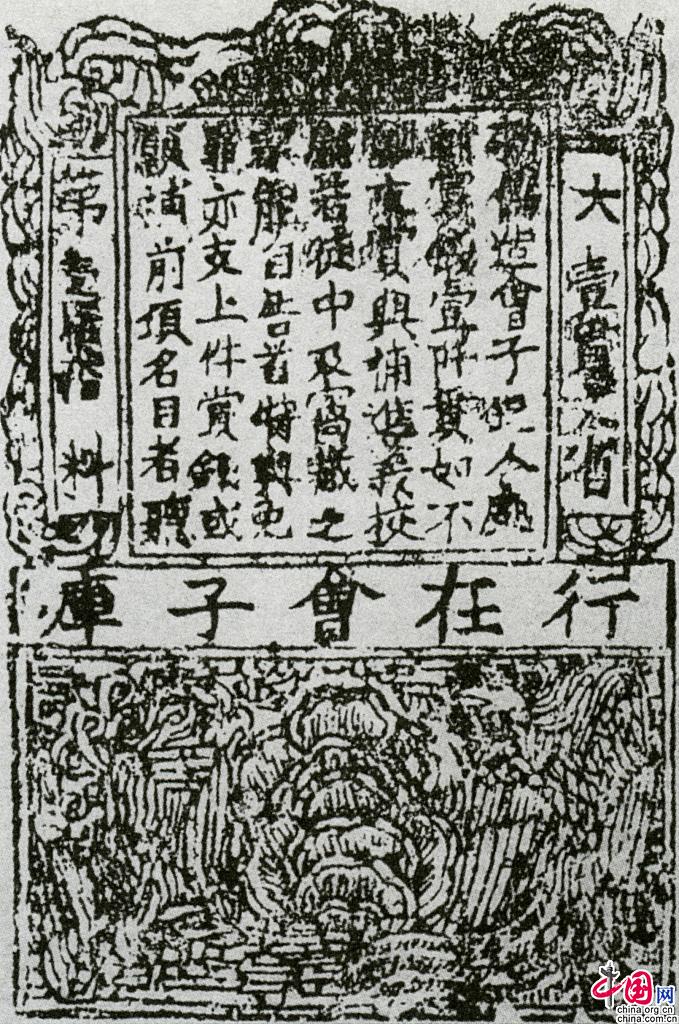 大壹貫文省
敕偽造會子犯人處
斬賞錢壹阡貫如不
願支賞與補進義校
尉若徒中及窩藏之
家能自告首特與免
罪亦支上件賞錢或
願補前項名目者聽
第壹拾料
行在會子庫
中国网
china.org.cn
china.com.cn